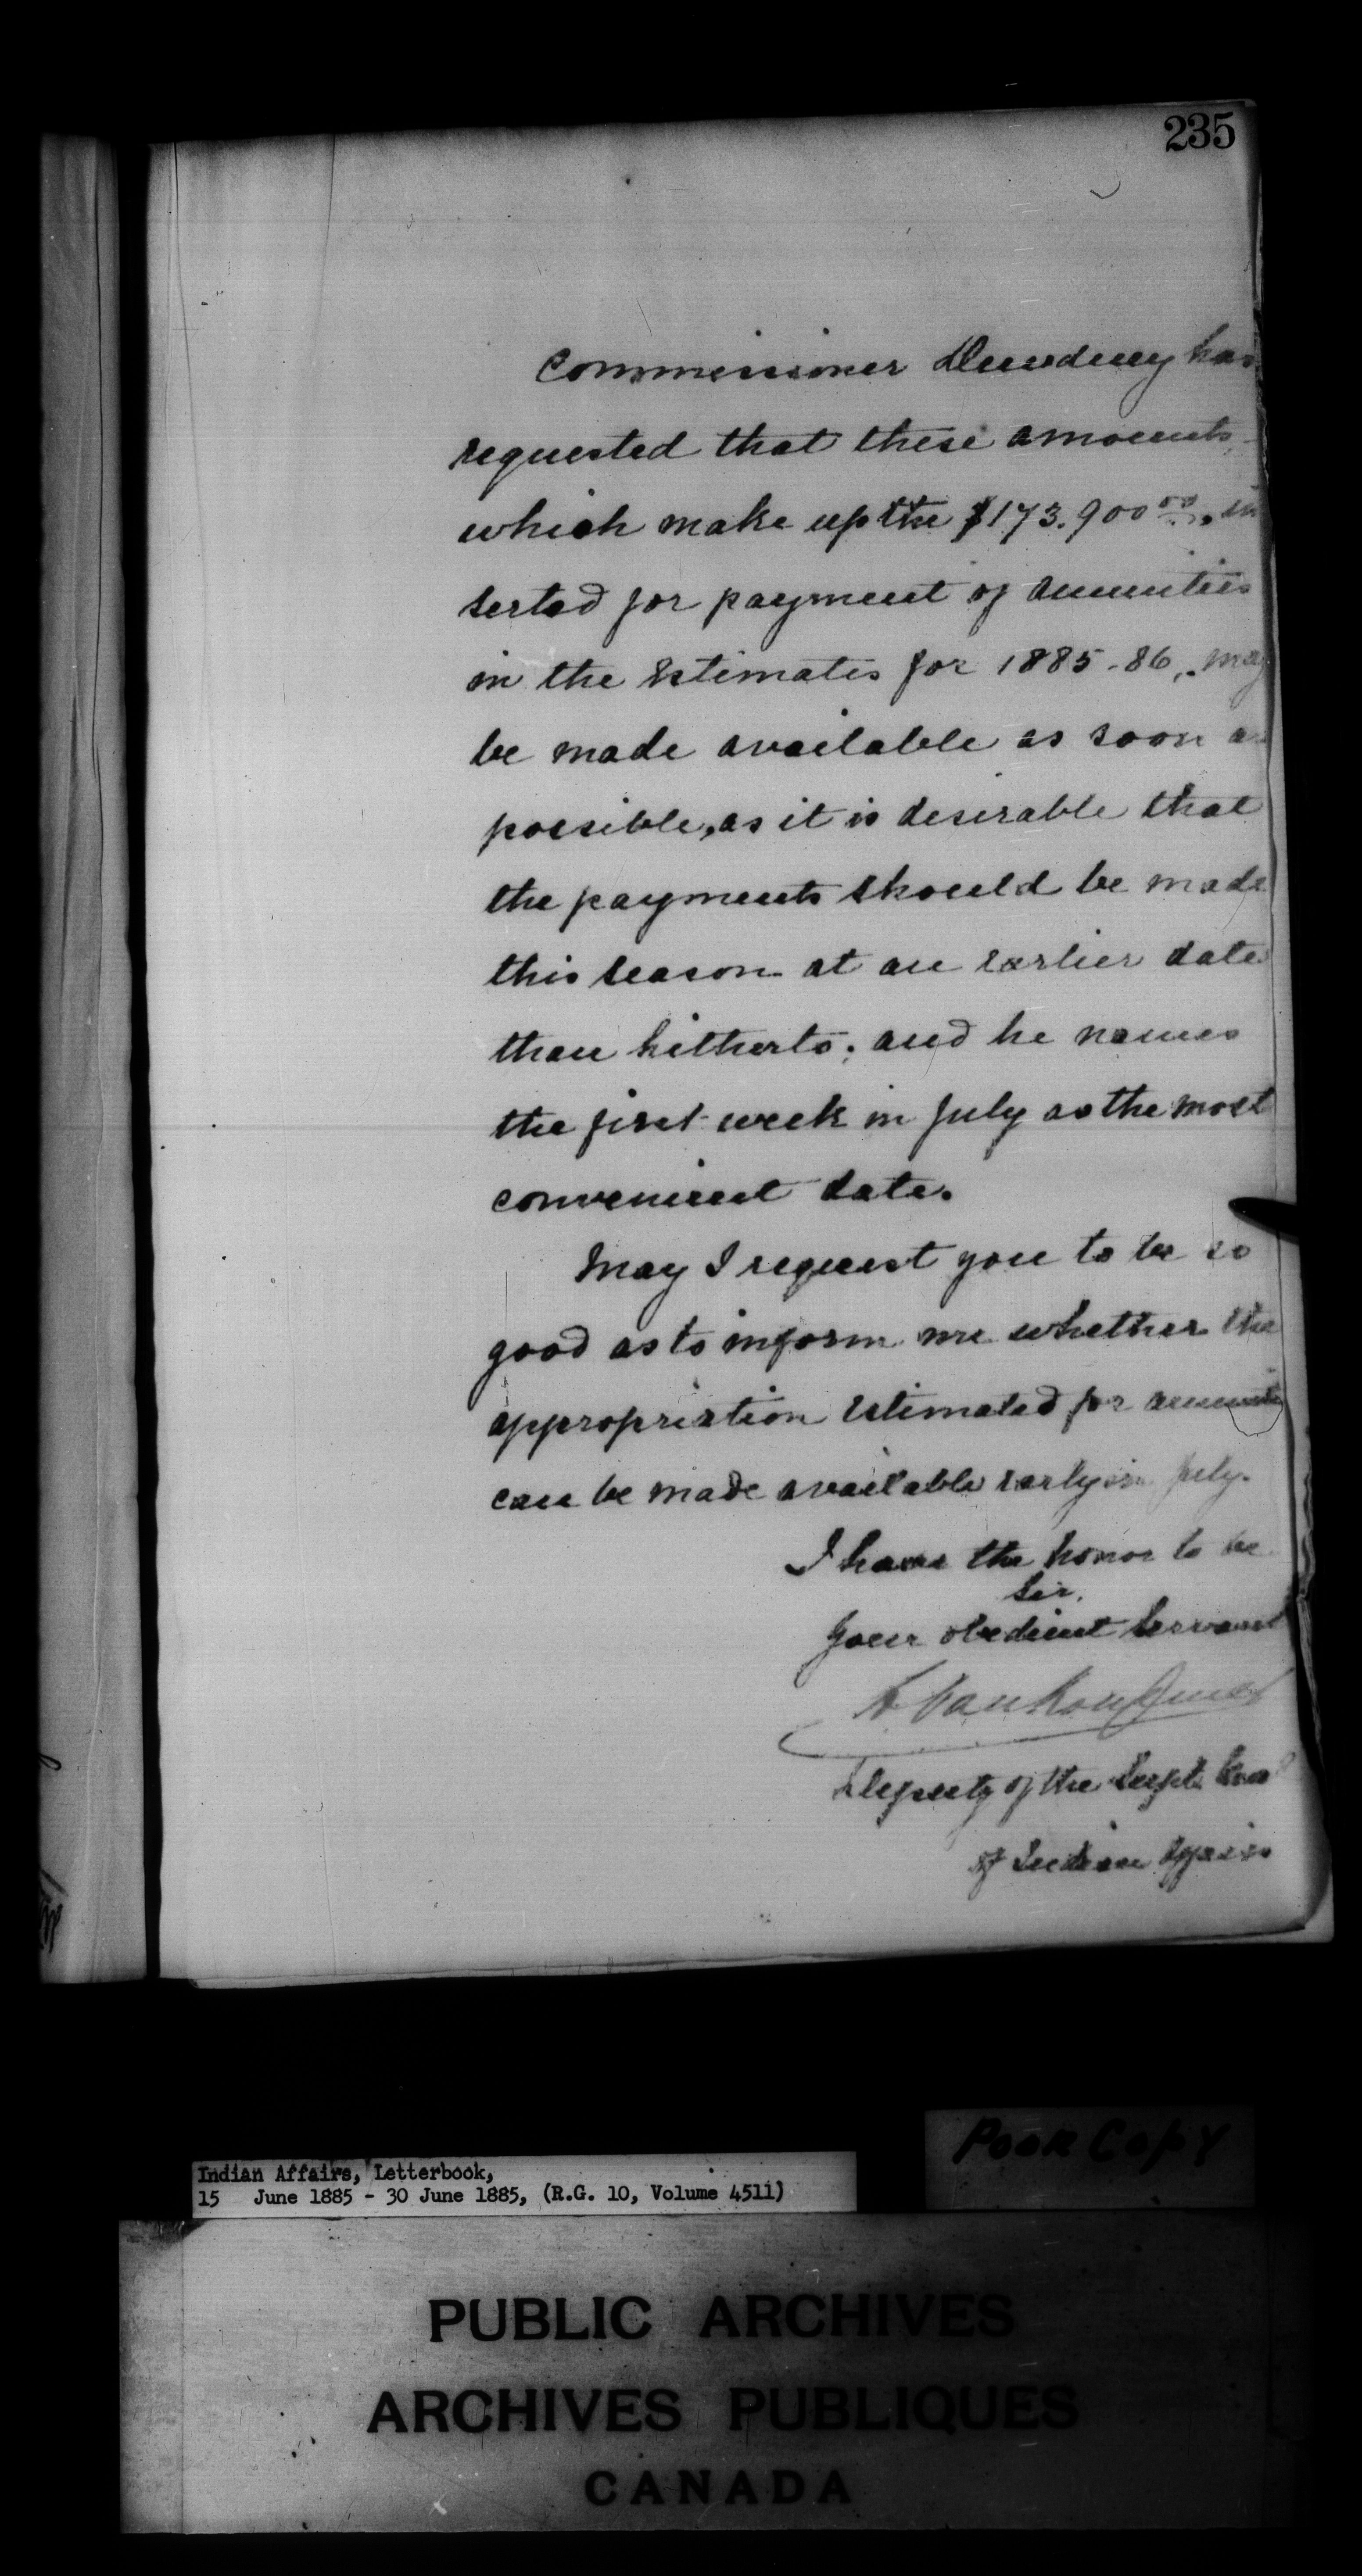 235
Commissioner Dewdney has
requested that these amounts,
which make up the $173.900 00, in
serted for payment of annuities
in the Estimates for 1885-86, may
be made available as soon as
possible, as it is desirable that
the payments should be made
this season at an earlier date
than hitherto; and he names
the first week in July as the most
convenient date.
May I request you to be so
good as to inform me whether the
appropriation estimated for annuities
can be made available early in July.
I have the honor to be
Sir,
Your obedient Servant
L. VanKoughnet
Deputy of the Supt. Gen
of Indian Affairs
Poor Copy
Indian Affairs, Letterbook,
15 June 1885 - 30 June 1885, (R.G. 10, Volume 4511)
PUBLIC ARCHIVES
ARCHIVES PUBLIQUES
CANADA